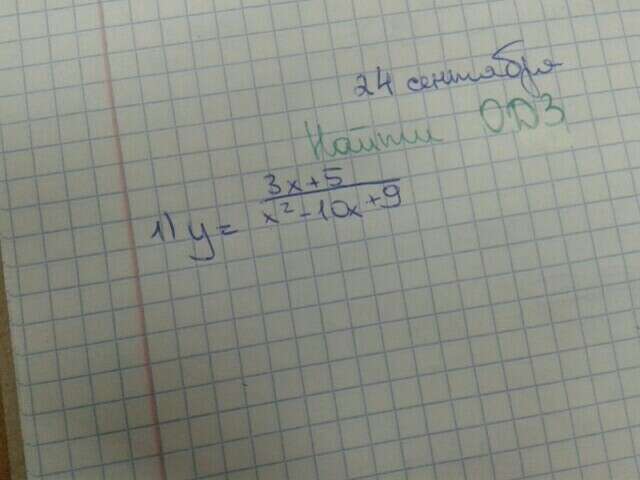 24 сентября
Найти ОДЗ
1) y = 3x+5
x²-10x+9